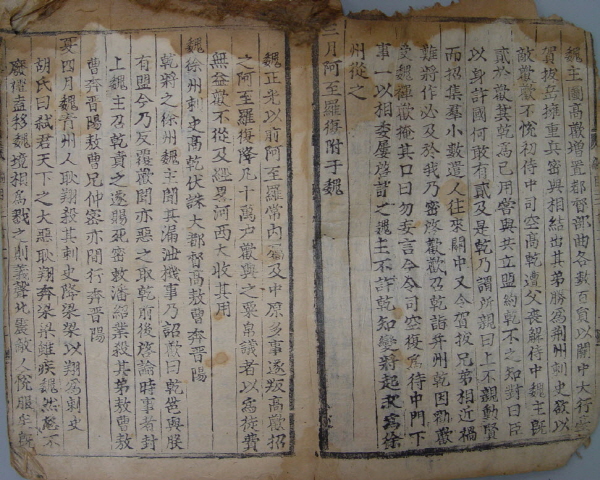 魏主圖高歡增置都督部曲各數百員以關中大行臺
賀拔岳擁重兵密與相結出其弟勝爲荊州刺史欲以
敵歡歡不悅初侍中司空高乾遭父喪解侍中魏主既
貳於歡冀乾爲己用嘗與共立盟約乾不之知對曰臣
以身許國何敢有貳及是乾乃謂所親曰上不親勳賢
而招集羣小數遣人往來關中又令賀拔兄弟相近禍
難將作必及於我乃密啓歡歡召乾詣并州乾因勸歡
受魏禪歡掩其口曰勿妄言今令司空復爲侍中門下
事一以相委屢啓請之魏主不許乾知變將起求爲徐
州從之
三月阿至羅復附于魏
魏正光以前阿至羅常內屬及中原多事遂叛高歡招
之阿至羅復降凡十萬戶歡與之粟帛議者以爲徒費
無益歡不從及經畧河西大收其用
魏徐州刺史高乾伏誅大都督高敖曹奔晉陽
乾將之徐州魏主聞其漏泄機事乃詔歡曰乾邕與朕
有盟今乃反覆歡聞亦惡之取乾前後啓論時事者封
上魏主召乾責之遂賜死密敕潘紹業殺其弟敖曹敖
曹奔晉陽敖曹兄仲密亦間行奔晉陽
夏四月魏青州人耿翔殺其刺史降梁梁以翔爲刺史
胡氏曰弒君天下之大惡耿翔奔梁梁雖疾魏然不
廢權移魏境相爲戮之則義聲北震敵人悅服矣旣